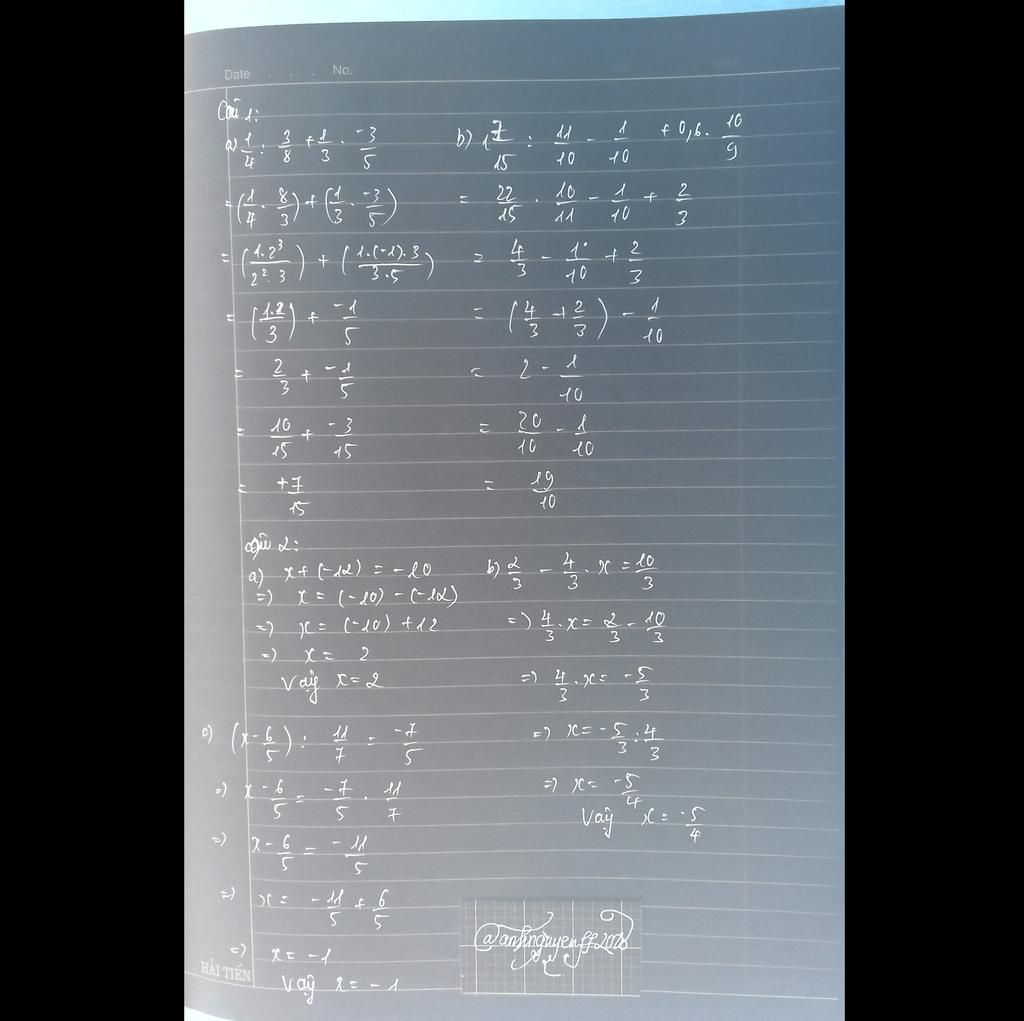 Date . . . No.
Câu 1:
a) 1/4 : 3/8 + 1/3 . -3/5
= (1/4 . 8/3) + (1/3 . -3/5)
= (1.2³/2².3) + (1.(-1).3/3.5)
= (1.2/3) + -1/5
= 2/3 + -1/5
= 10/15 + -3/15
= +7/15
b) 1 7/15 : 11/10 - 1/10 + 0,6 . 10/9
= 22/15 . 10/11 - 1/10 + 2/3
= 4/3 - 1/10 + 2/3
= (4/3 + 2/3) - 1/10
= 2 - 1/10
= 20/10 - 1/10
= 19/10
Câu 2:
a) x + (-12) = -10
=) x = (-10) - (-12)
=) x = (-10) + 12
=) x = 2
Vậy x = 2
b) 2/3 - 4/3 . x = 10/3
=) 4/3 . x = 2/3 - 10/3
=) 4/3 . x = -5/3
=) x = -5/3 : 4/3
=) x = -5/4
Vậy x = -5/4
c) (x - 6/5) : 11/7 = -7/5
=) x - 6/5 = -7/5 . 11/7
=) x - 6/5 = -11/5
=) x = -11/5 + 6/5
=) x = -1
Vậy x = -1
HẢI TIẾN
@anhnguyenff2008